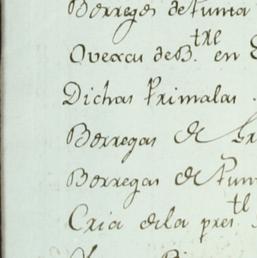 Borregos de Punta
Ovexas de B.tre en
Dichas Primalas
Borregas de
Borregas de Pun
Cria de la pres.tl